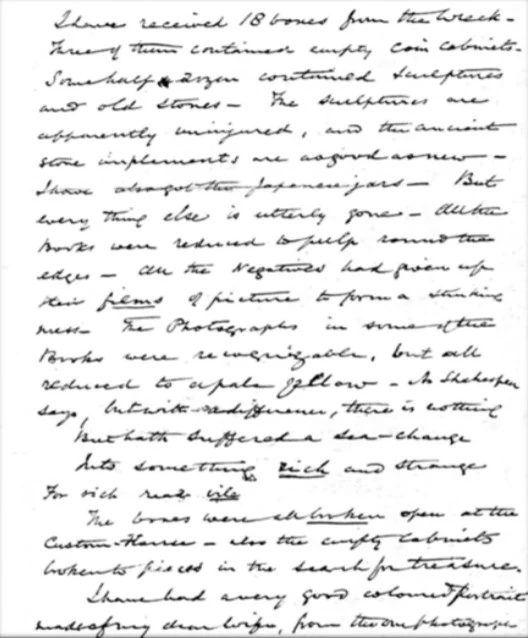 I have received 18 boxes from the wreck -
Three of them contained empty coin cabinets.
Some half a dozen contained sculptures
and old stones - The sculptures are
apparently uninjured, and the ancient
stone implements are as good as new -
I have also got the Japanese jars - But
every thing else is utterly gone - All the
books were reduced to pulp round the
edges - All the Negatives had given up
their films of picture to form a stinking
mess - The Photographs in some of the
Books were recognizable, but all
reduced to a pale yellow - As Shakespear
says, but with a difference, there is nothing
But hath suffered a sea-change
Into something rich and strange
For rich read vile
The boxes were all broken open at the
Custom-House - also the empty cabinets
broken to pieces in the search for treasure.
I have had a very good coloured portrait
made of my dear wife, from the photograph